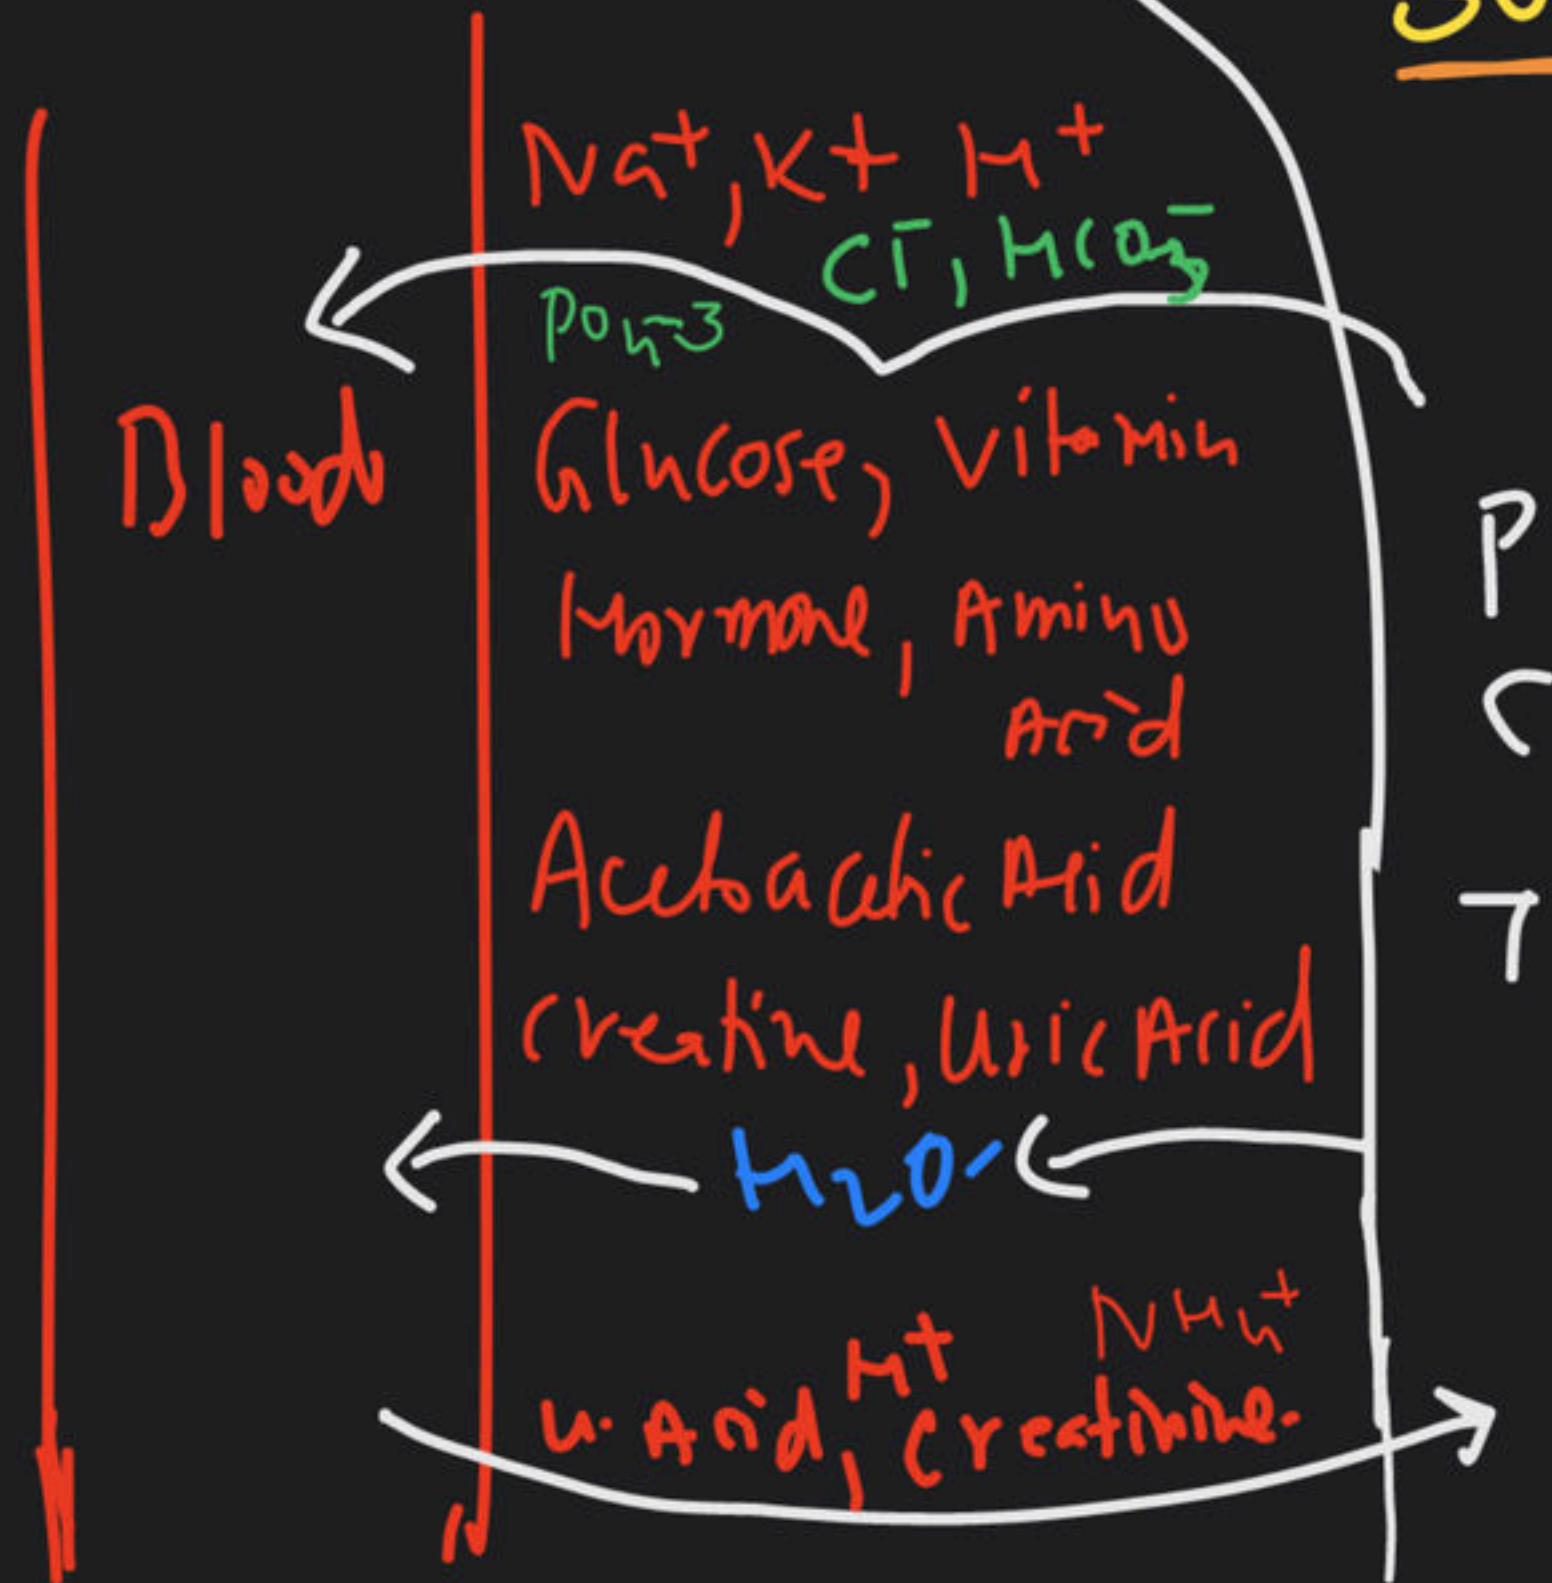 Na+, K+ H+
Cl-, HCO3-
PO4-3
Blood
Glucose, Vitamin
Hormone, Amino
Acid
Acetoacetic Acid
Creatine, Uric Acid
H2O
H+ NH4+
U. Acid, Creatinine.
P
C
T